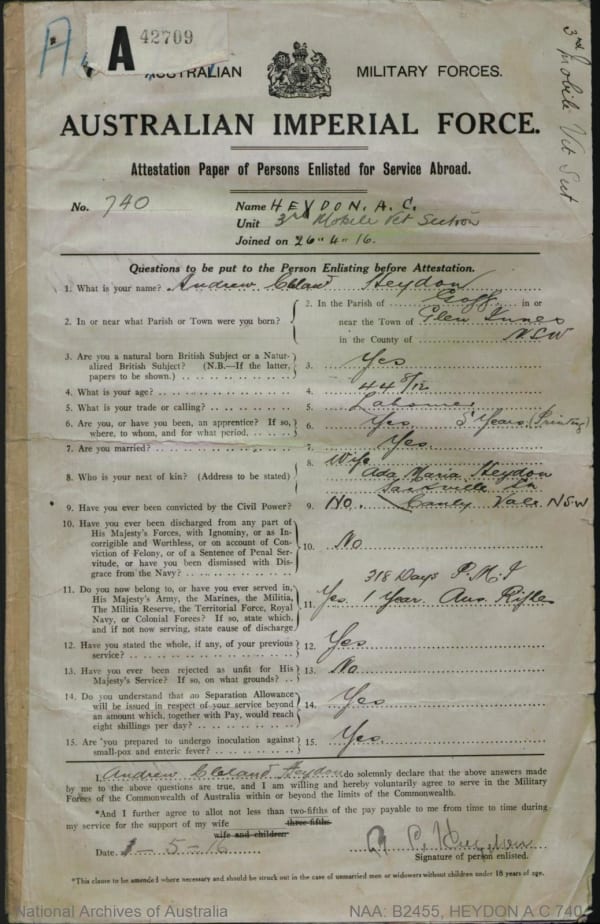 A 42709
AUSTRALIAN MILITARY FORCES.
3rd Mobile Vet Sect
AUSTRALIAN IMPERIAL FORCE.
Attestation Paper of Persons Enlisted for Service Abroad.
No. 740
Name HEYDON. A. C.
Unit 3rd Mobile Vet Section
Joined on 26"4"16.
Questions to be put to the Person Enlisting before Attestation.
1. What is your name? Andrew Cleland Heydon
2. In or near what Parish or Town were you born?
2. In the Parish of Goff in or
near the Town of Glen Innes
in the County of NSW
3. Are you a natural born British Subject or a Natur-
alized British Subject? (N.B.—If the latter,
papers to be shown.)
3. Yes
4. What is your age?
4. 44 8/12
5. What is your trade or calling?
5. Labourer
6. Are you, or have you been, an apprentice? If so,
where, to whom, and for what period.
6. Yes 5 Years (Printing)
7. Are you married?
7. Yes.
8. Who is your next of kin? (Address to be stated)
8. Wife
Ada Maria Heydon
Sackville
Canley Vale NSW
9. Have you ever been convicted by the Civil Power?
9. No.
10. Have you ever been discharged from any part of
His Majesty's Forces, with Ignominy, or as In-
corrigible and Worthless, or on account of Con-
viction of Felony, or of a Sentence of Penal Ser-
vitude, or have you been dismissed with Dis-
grace from the Navy?
10. No
11. Do you now belong to, or have you ever served in,
His Majesty's Army, the Marines, the Militia,
The Militia Reserve, the Territorial Force, Royal
Navy, or Colonial Forces? If so, state which,
and if not now serving, state cause of discharge
318 Days P.M.F
11. Yes. 1 Year Aus. Rifles
12. Have you stated the whole, if any, of your previous
service?
12. Yes
13. Have you ever been rejected as unfit for His
Majesty's Service? If so, on what grounds?
13. No
14. Do you understand that no Separation Allowance
will be issued in respect of your service beyond
an amount which, together with Pay, would reach
eight shillings per day?
14. Yes
15. Are you prepared to undergo inoculation against
small-pox and enteric fever?
15. Yes.
I, Andrew Cleland Heydon do solemnly declare that the above answers made
by me to the above questions are true, and I am willing and hereby voluntarily agree to serve in the Military
Forces of the Commonwealth of Australia within or beyond the limits of the Commonwealth.
*And I further agree to allot not less than two-fifths of the pay payable to me from time to time during
three-fifths
my service for the support of my wife
wife and children
Date 1 - 5 - 16
A. C. Heydon
Signature of person enlisted.
*This clause to be amended where necessary and should be struck out in the case of unmarried men or widowers without children under 18 years of age.
National Archives of Australia
NAA: B2455, HEYDON A C 740